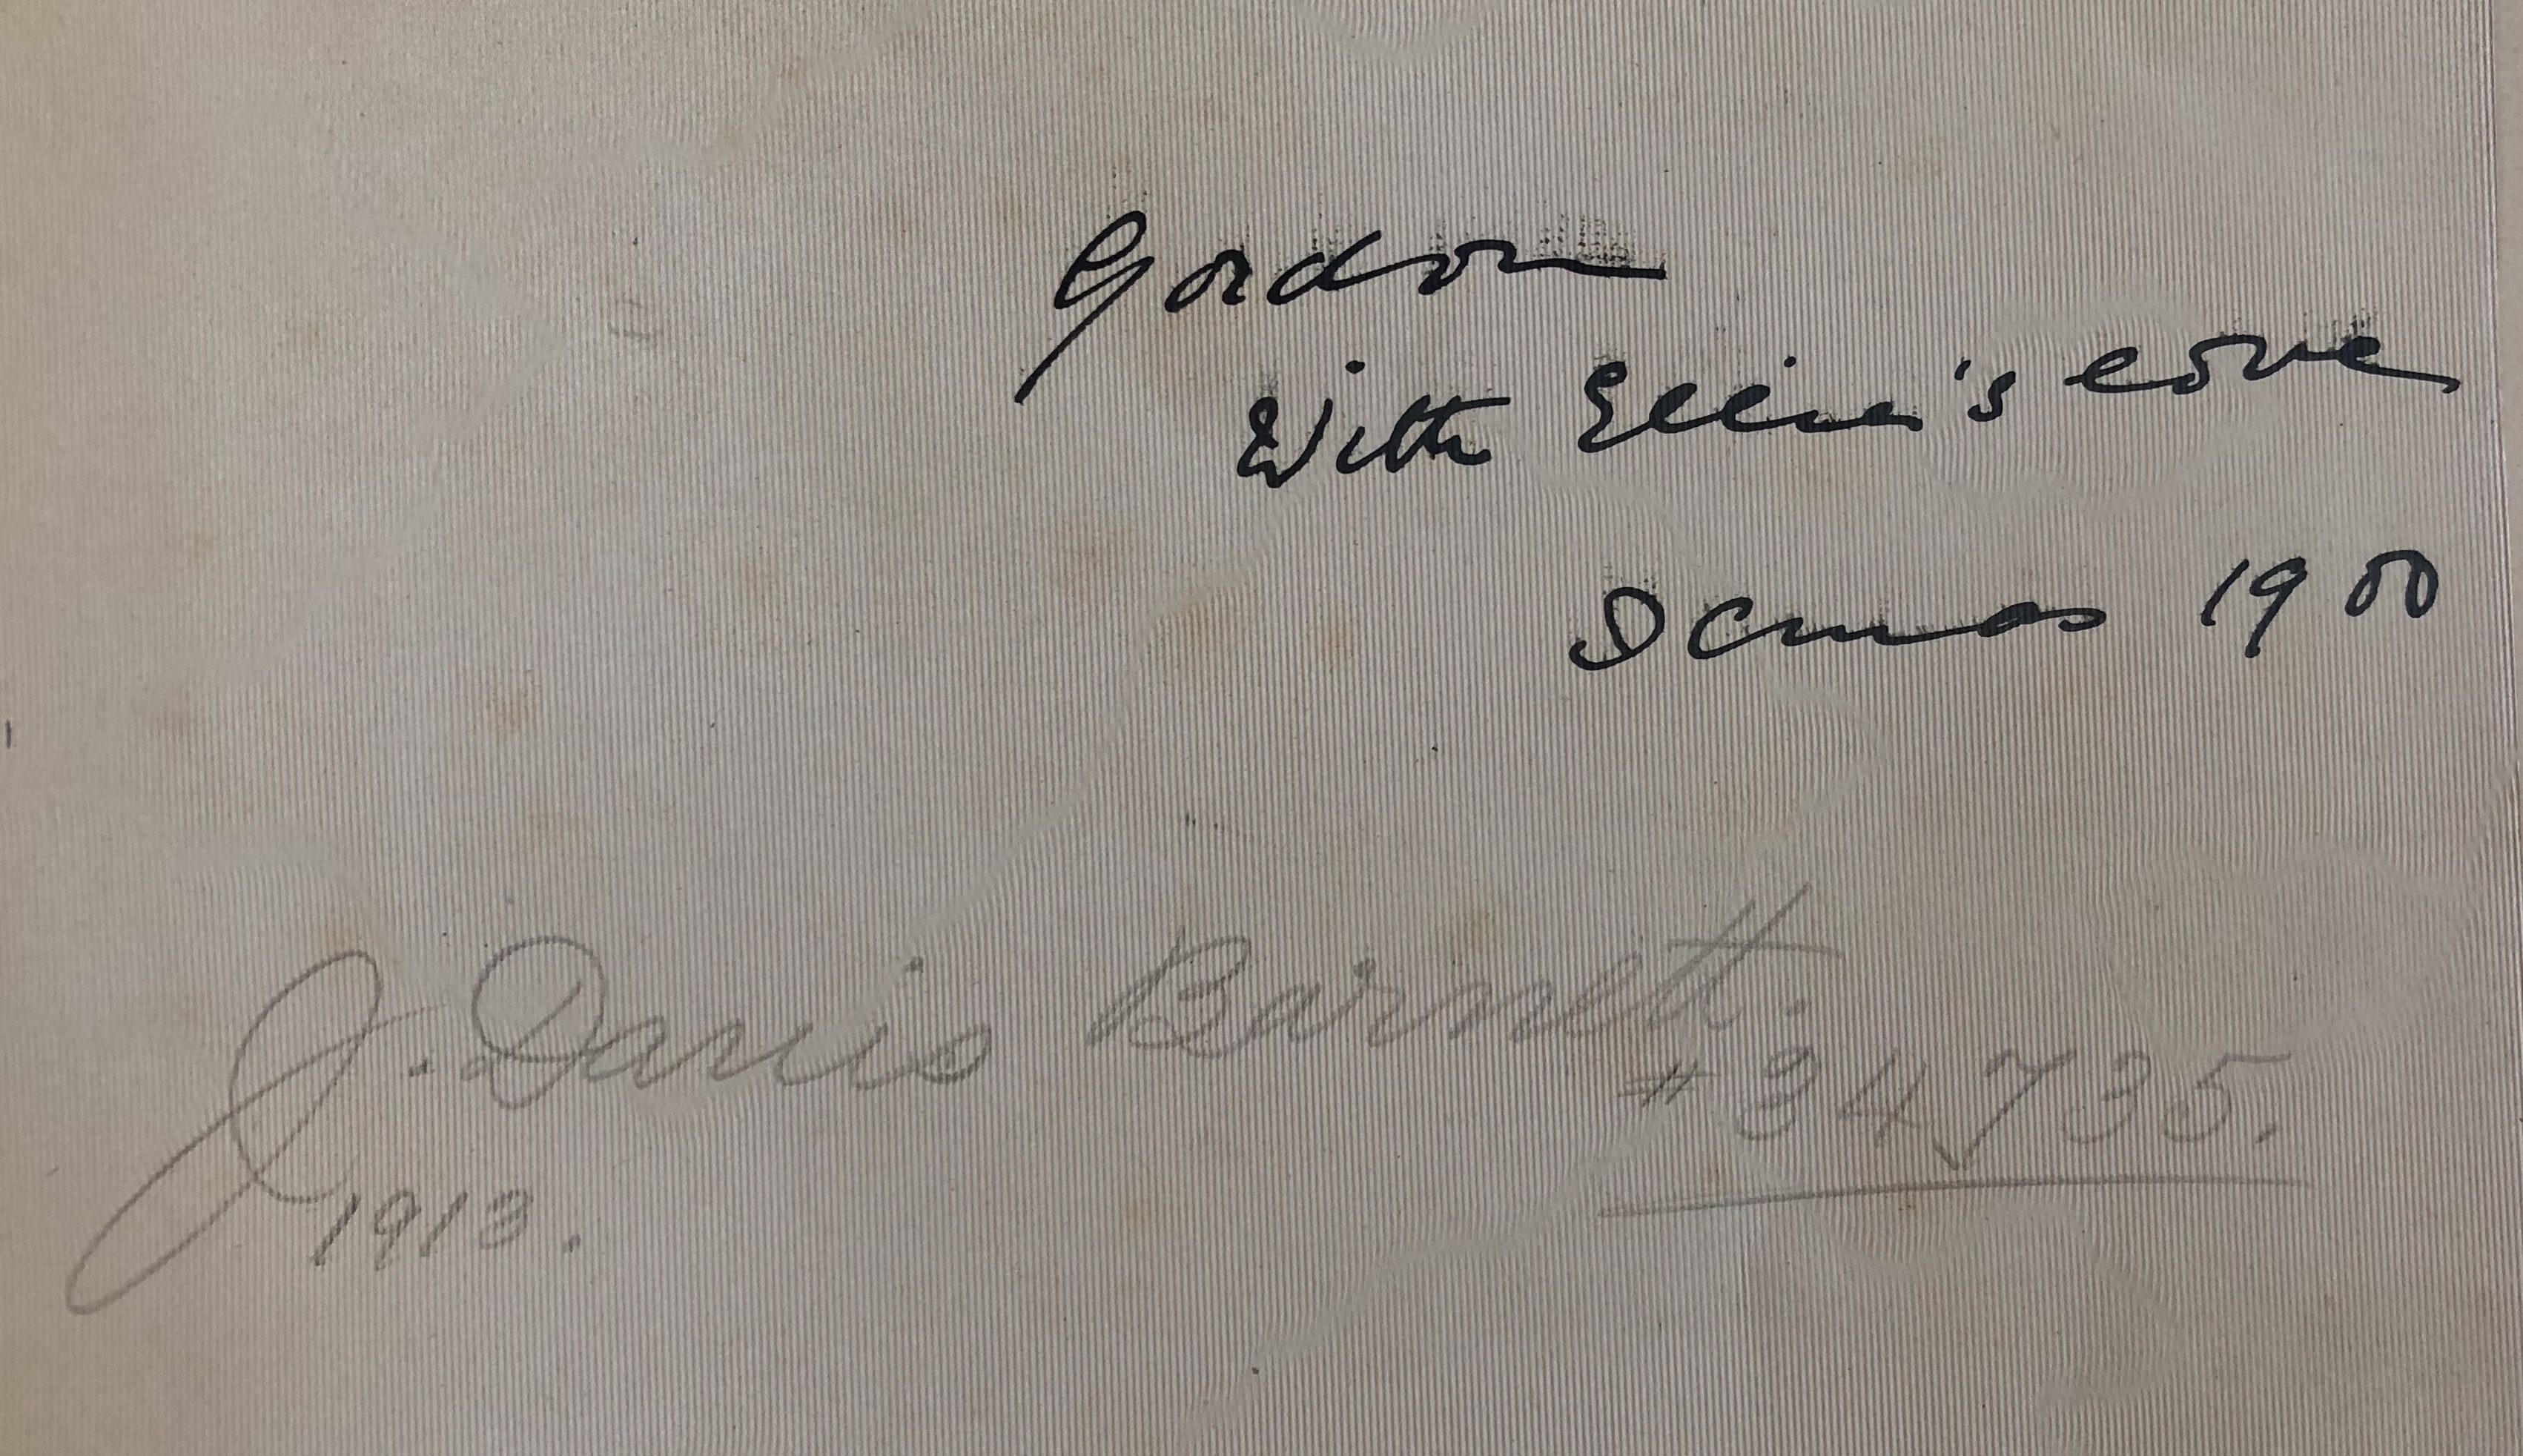 Gordon
With Ellen's love
Xmas 1900
J. Davis Barnett.
#34735.
1913.